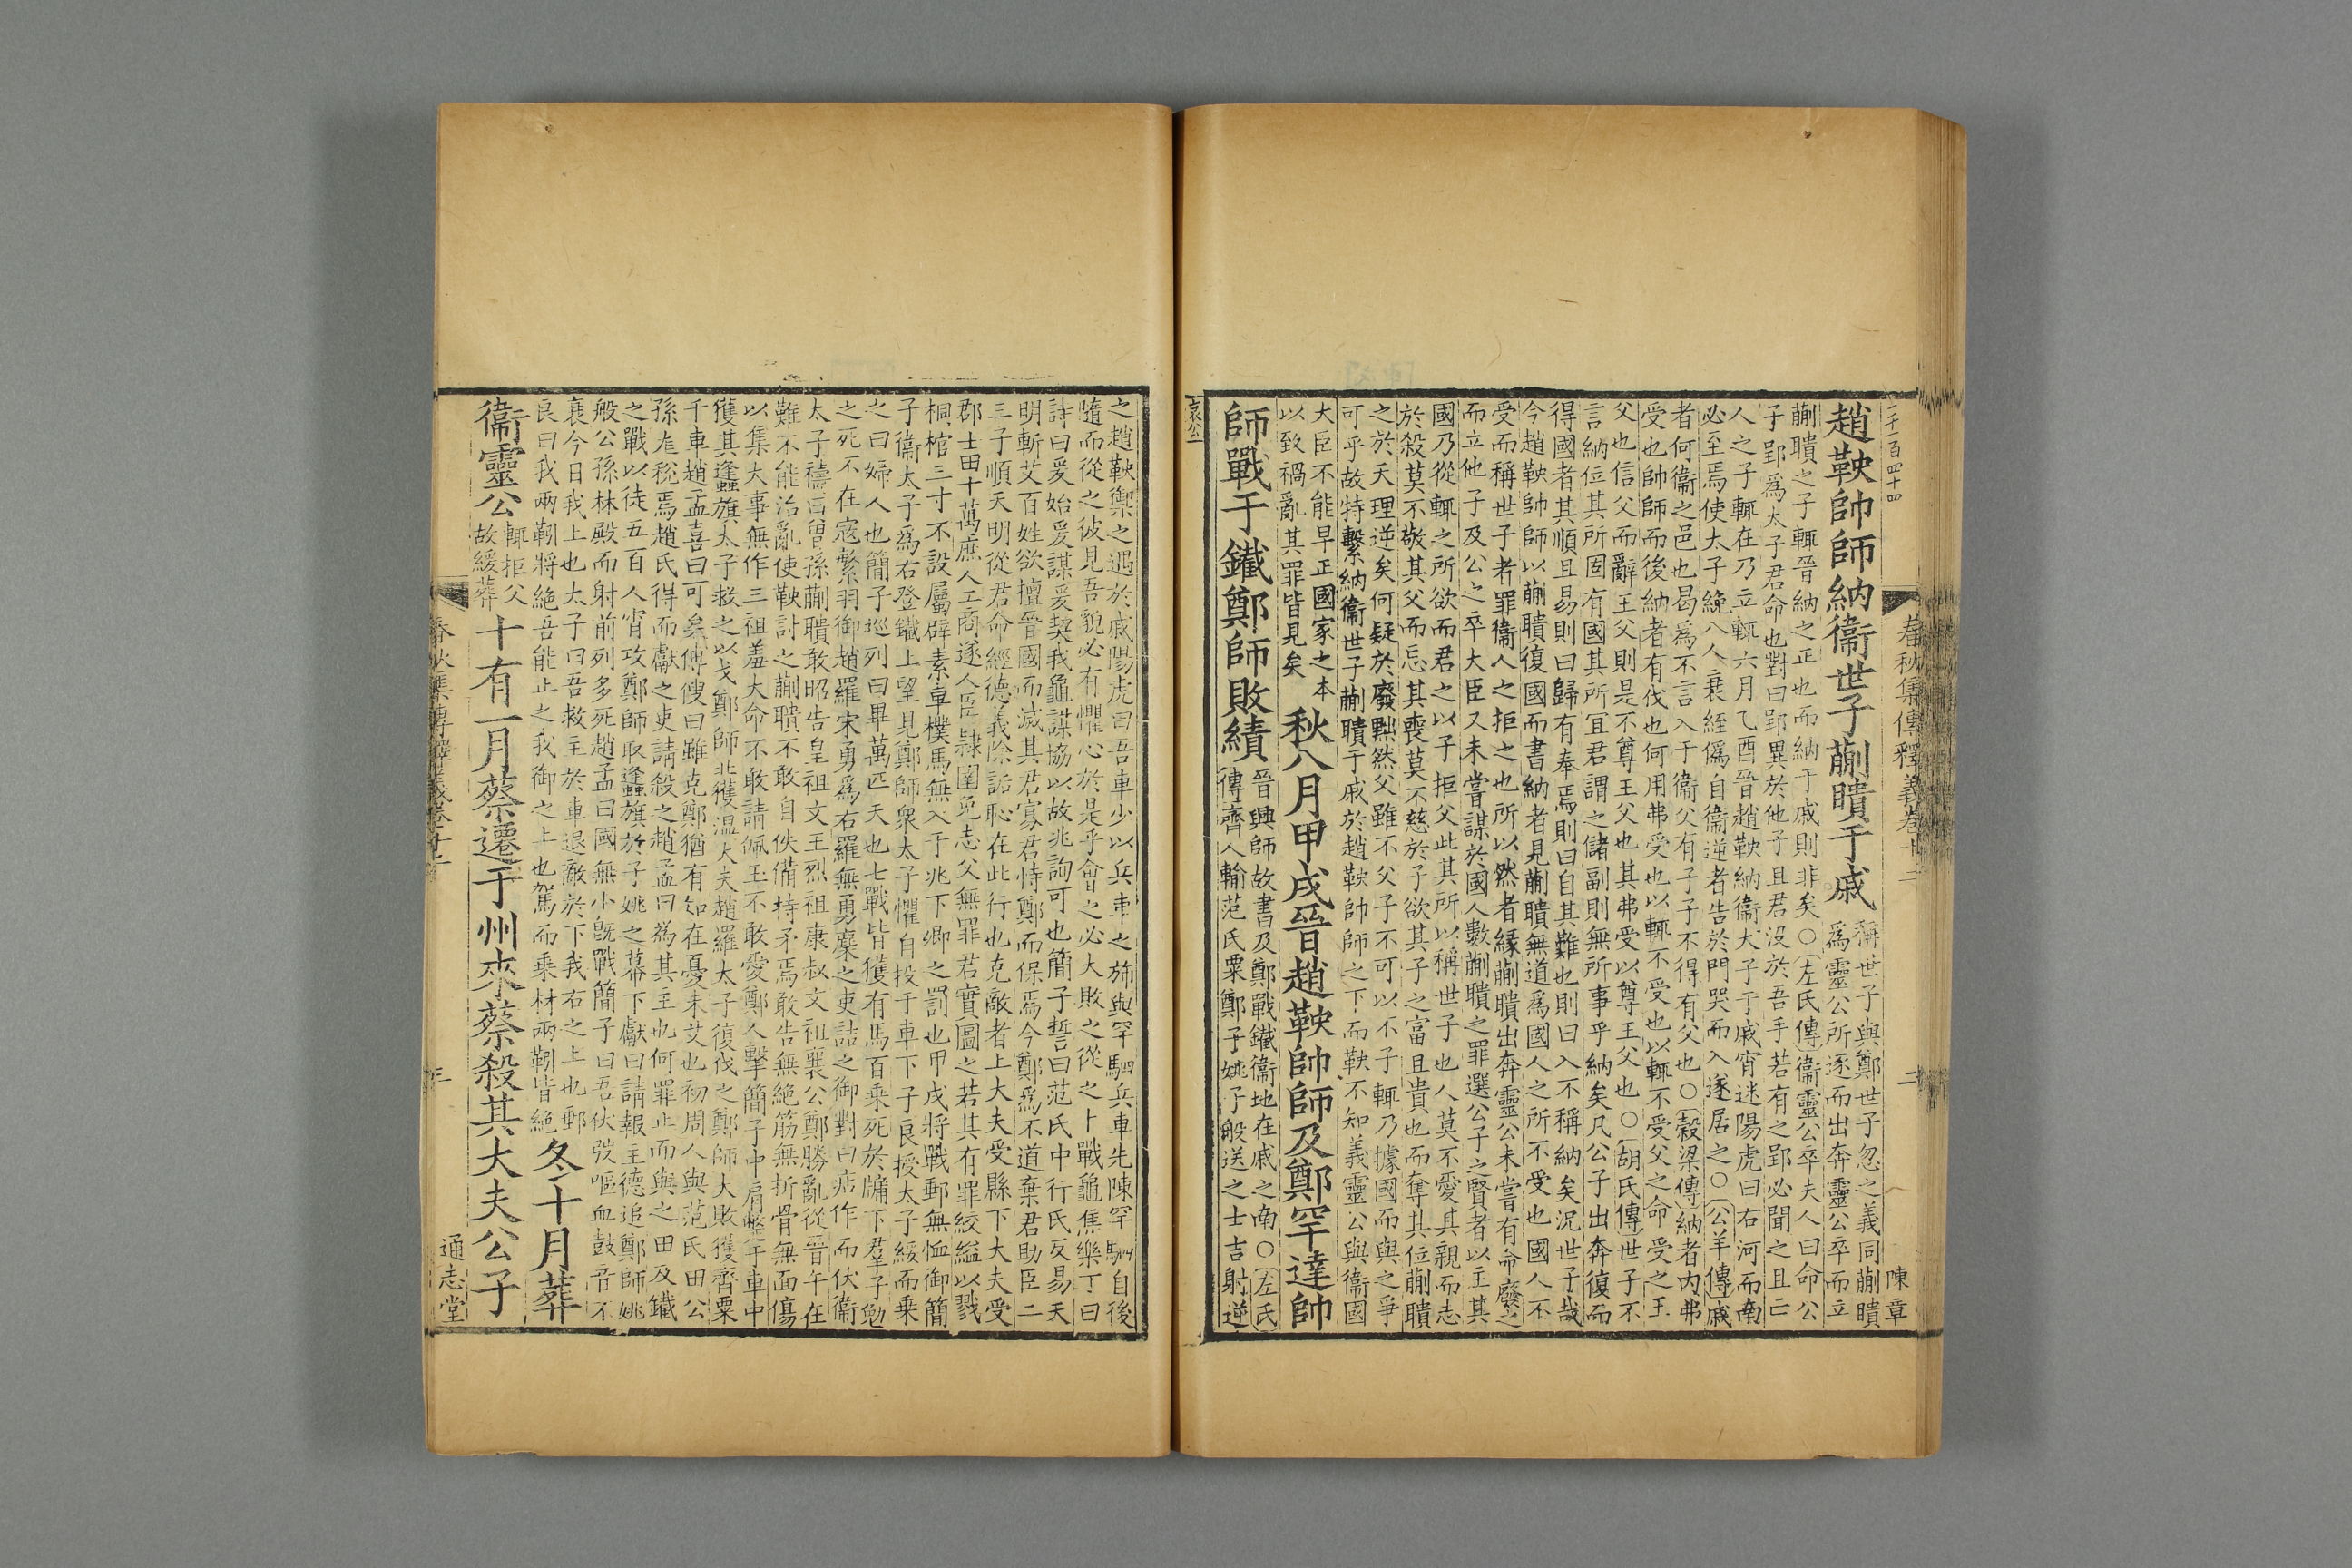 二千一百四十四
春秋集傳釋義卷十二
二
陳章
趙鞅帥師納衞世子蒯聵于戚
稱世子與鄭世子忽之義同蒯聵
爲靈公所逐而出奔靈公卒而立
蒯聵之子輒晉納之正也而納于戚則非矣○左氏傳衞靈公卒夫人曰命公
子郢爲太子君命也對曰郢異於他子且君沒於吾手若有之郢必聞之且亡
人之子輒在乃立輒六月乙酉晉趙鞅納衞太子于戚宵迷陽虎曰右河而南
必至焉使太子絻八人衰絰僞自衞逆者告於門哭而入遂居之○公羊傳戚
者何衞之邑也曷爲不言入于衞父有子子不得有父也○穀梁傳納者内弗
受也帥師而後納者有伐也何用弗受也以輒不受也以輒不受父之命受之王
父也信父而辭王父則是不尊王父也其弗受以尊王父也○胡氏傳世子不
言納位其所固有國其所宜君謂之儲副則無所事乎納矣凡公子出奔復而
得國者其順且易則曰歸有奉焉則曰自其難也則曰入不稱納矣況世子哉
今趙鞅帥師以蒯聵復國而書納者見蒯聵無道爲國人之所不受也國人不
受而稱世子者罪衞人之拒之也所以然者緣蒯聵出奔靈公未嘗有命廢之
而立他子及公之卒大臣又未嘗謀於國人數蒯聵之罪選公子之賢者以主其
國乃從輒之所欲而君之以子拒父此其所以稱世子也人莫不愛其親而志
於殺莫不敬其父而忘其喪莫不慈於子欲其子之富且貴也而奪其位蒯聵
之於天理逆矣何疑於廢黜然父雖不父子不可以不子輒乃據國而與之爭
可乎故特繫納衞世子蒯聵于戚於趙鞅帥師之下而鞅不知義靈公與衞國
大臣不能早正國家之本
以致禍亂其罪皆見矣
秋八月甲戌晉趙鞅帥師及鄭罕達帥
師戰于鐵鄭師敗績
晉興師故書及鄭戰鐵衞地在戚之南○左氏
傳齊人輸范氏粟鄭子姚子般送之士吉射逆
哀公
之趙鞅禦之遇於戚陽虎曰吾車少以兵車之旆與罕駟兵車先陳罕駟自後
隨而從之彼見吾貌必有懼心於是乎會之必大敗之從之卜戰龜焦樂丁曰
詩曰爰始爰謀爰契我龜謀協以故兆詢可也簡子誓曰范氏中行氏反易天
明斬艾百姓欲擅晉國而滅其君寡君恃鄭而保焉今鄭爲不道棄君助臣二
三子順天明從君命經德義除詬恥在此行也克敵者上大夫受縣下大夫受
郡士田十萬庶人工商遂人臣隸圉免志父無罪君實圖之若其有罪絞縊以戮
桐棺三寸不設屬辟素車樸馬無入于兆下卿之罰也甲戌將戰郵無恤御簡
子衞太子爲右登鐵上望見鄭師衆太子懼自投于車下子良授太子綏而乗
之曰婦人也簡子巡列曰畢萬匹夫也七戰皆獲有馬百乗死於牖下羣子勉
之死不在寇繁羽御趙羅宋勇爲右羅無勇麇之吏詰之御對曰痁作而伏衞
太子禱曰曾孫蒯聵敢昭告皇祖文王烈祖康叔文祖襄公鄭勝亂從晉午在
難不能治亂使鞅討之蒯聵不敢自佚備持矛焉敢告無絶筋無折骨無面傷
以集大事無作三祖羞大命不敢請佩玉不敢愛鄭人擊簡子中肩斃于車中
獲其蠭旗太子救之以戈鄭師北獲温大夫趙羅太子復伐之鄭師大敗獲齊粟
千車趙孟喜曰可矣傅傁曰雖克鄭猶有知在憂未艾也初周人與范氏田公
孫尨稅焉趙氏得而獻之吏請殺之趙孟曰為其主也何罪止而與之田及鐵
之戰以徒五百人宵攻鄭師取蠭旗於子姚之幕下獻曰請報主德追鄭師姚
般公孫林殿而射前列多死趙孟曰國無小旣戰簡子曰吾伏弢嘔血鼓音不
衰今日我上也太子曰吾救主於車退敵於下我右之上也郵
良曰我兩靷將絕吾能止之我御之上也駕而乗材兩靷皆絶
冬十月葬
衞靈公
輒拒父
故緩葬
十有一月蔡遷于州來蔡殺其大夫公子
春秋集傳釋義卷十二
三
通志堂